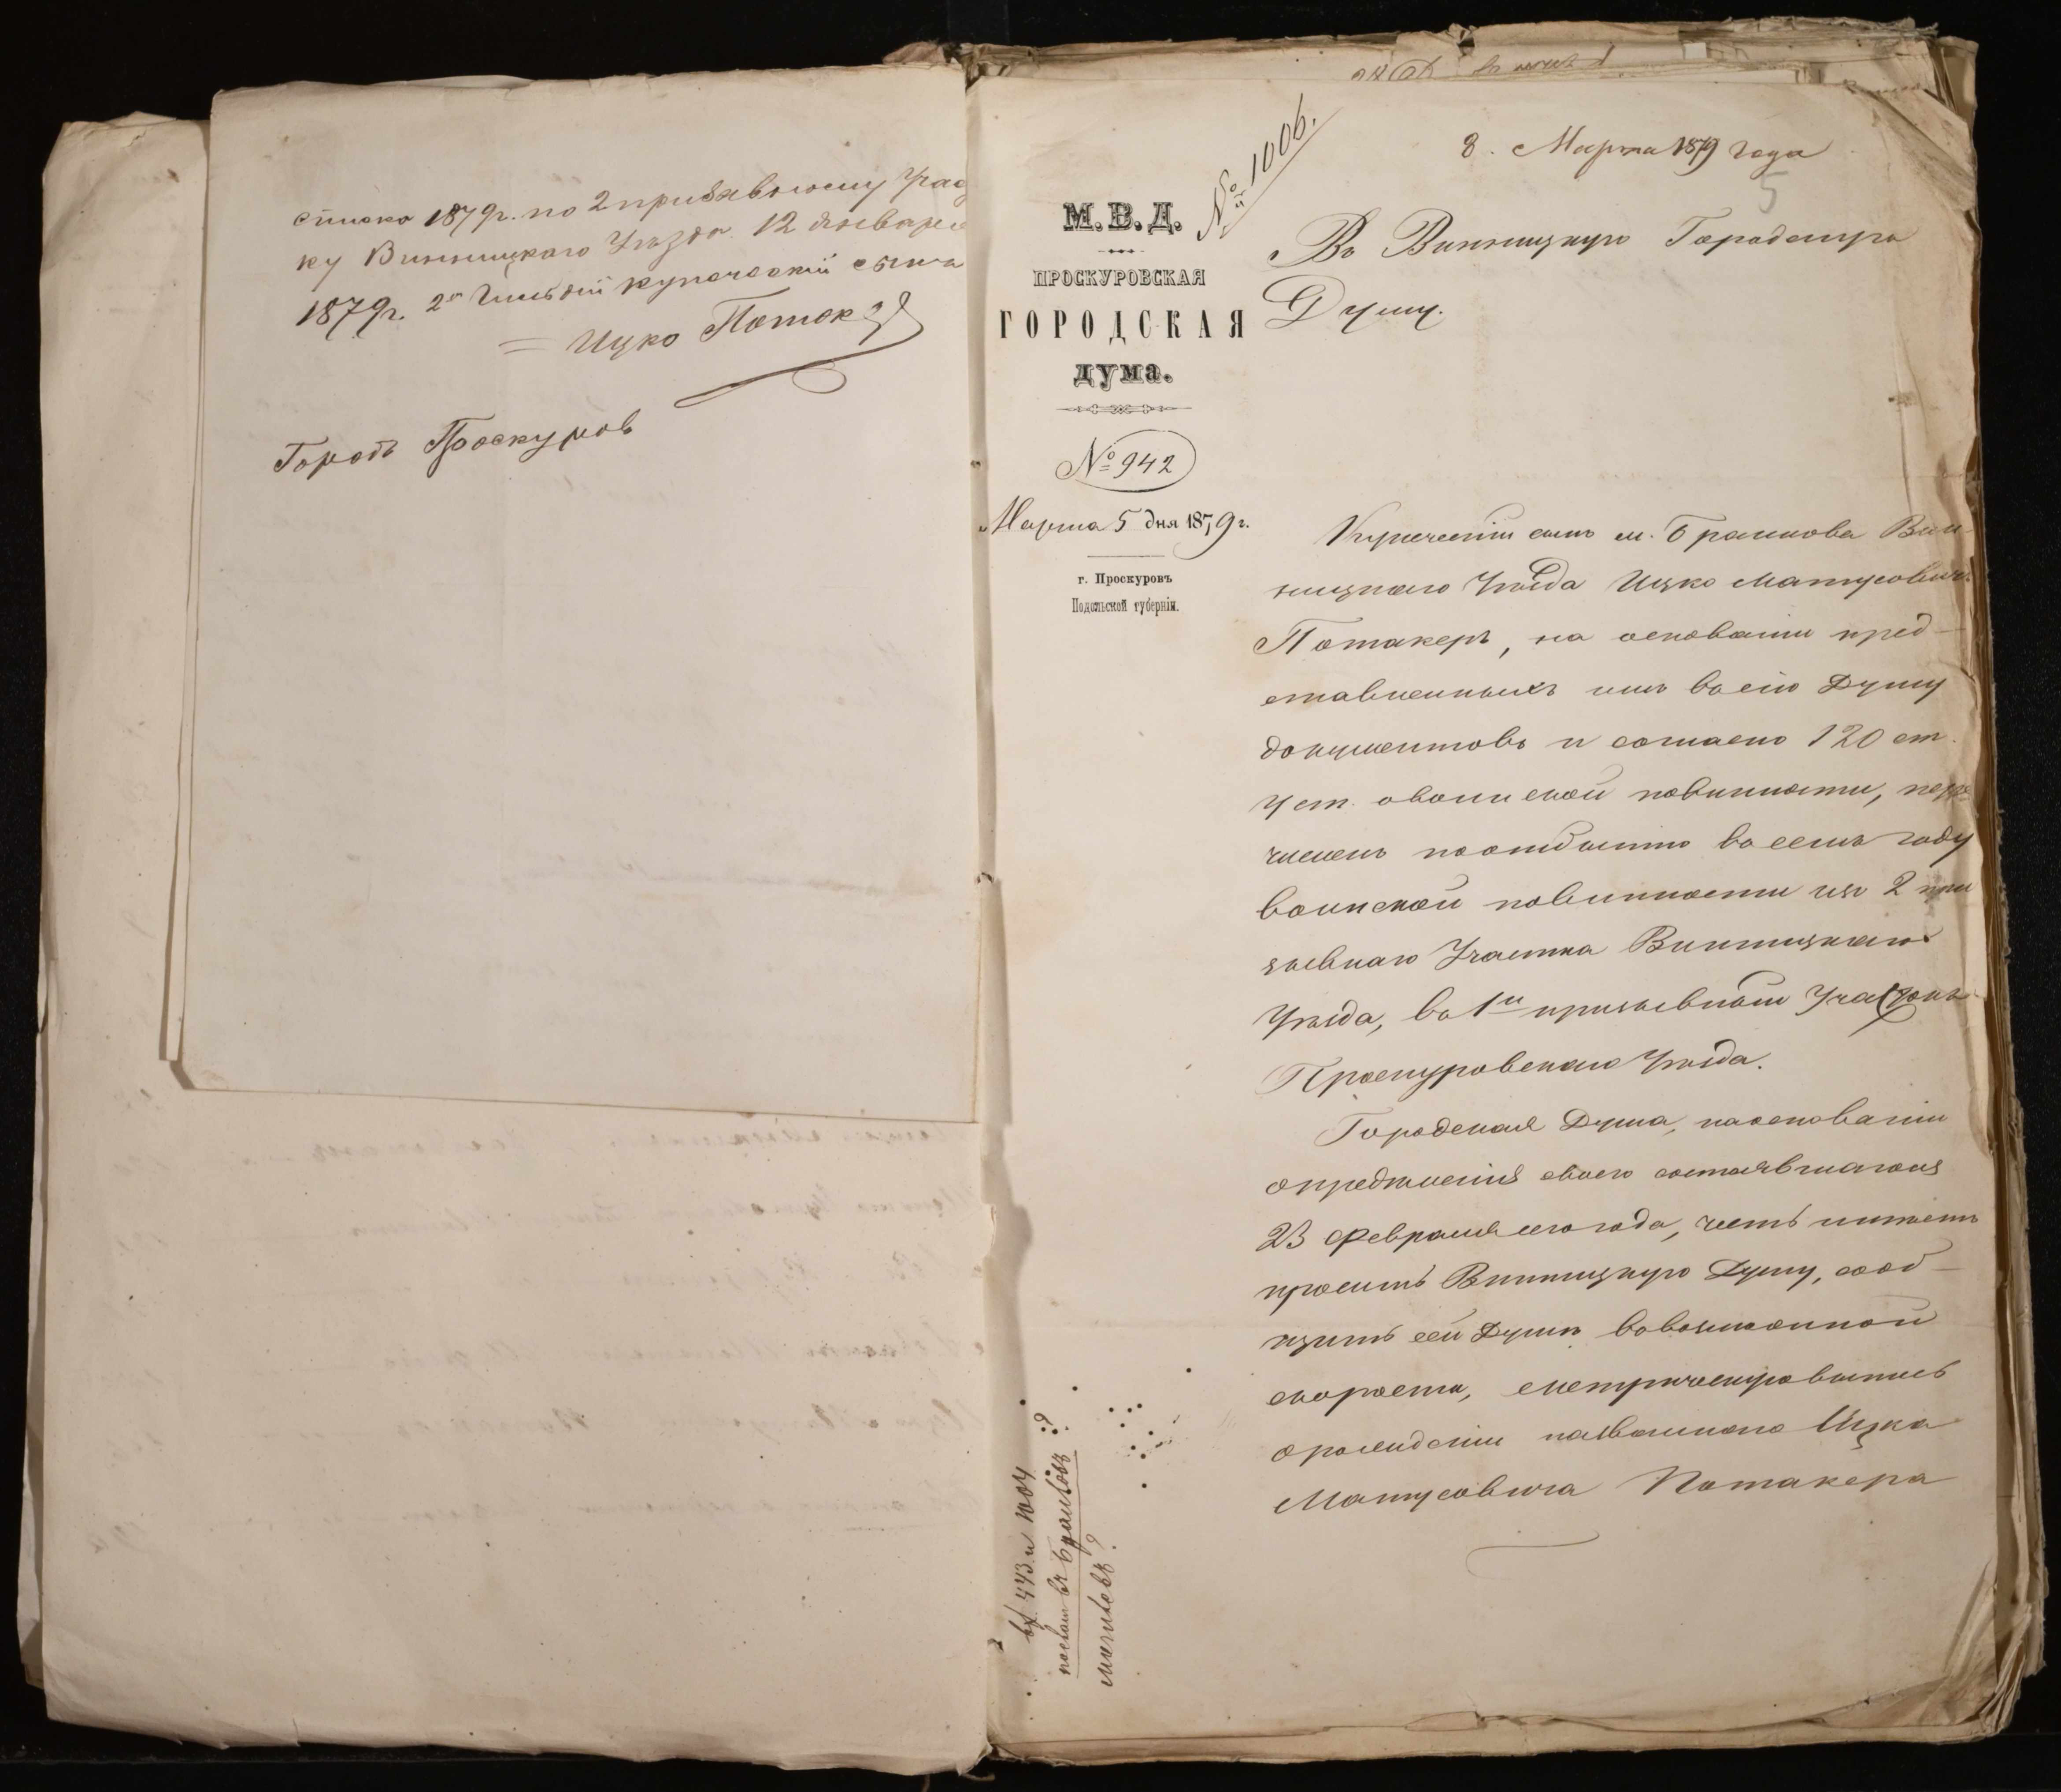 списка 1879г. по 2 призывному Учас
ку Винницкаго Уѣзда 12 января
1879г. 2й Гильдіи купеческій сынъ
Ицко Потакер
Городъ Проскуровъ
№ 1006.
8. Марта 1879 года
5
М.В.Д.
ПРОСКУРОВСКАЯ
ГОРОДСКАЯ
дума.
№ 942
Марта 5 дня 1879 г.
г. Проскуровъ
Подольской губерніи.
Въ Винницкую Городскую
Думу.
Купеческій сынъ м. Браилова Вин-
ницкаго Уѣзда Ицко Матусовичъ
Потакеръ, на основаніи пред-
ставленныхъ имъ въ сію Думу
документовъ и согласно 120 ст.
Уст. о воинской повинности, пере
численъ по отбытію въ семъ году
воинской повинности изъ 2 при
зывнаго Участка Винницкаго
Уѣзда, въ 1й призывной Участокъ
Проскуровскаго Уѣзда.
Городская Дума, на основаніи
опредѣленія своего состоявшагося
23 Февраля сего года, честь имѣетъ
просить Винницкую Думу, сооб-
щить сей Думѣ въ возможной
скорости, метрическую выпись
о рожденіи названнаго Ицка
Матусовича Потакера
вх 443 и 1004
въ Браиловѣ ??